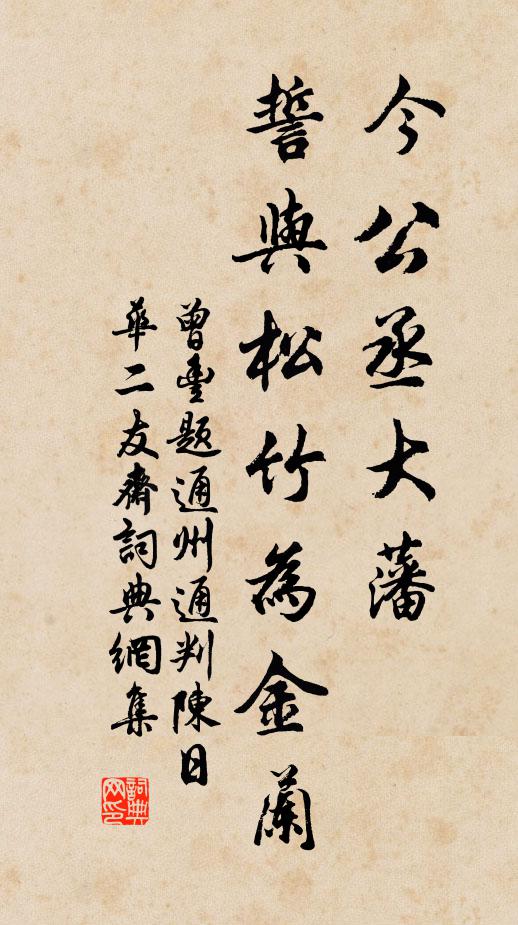 今公丞大藩
誓與松竹為金蘭
曾豊題通州通判陳日
華二友齋詞典網集
詞典网印